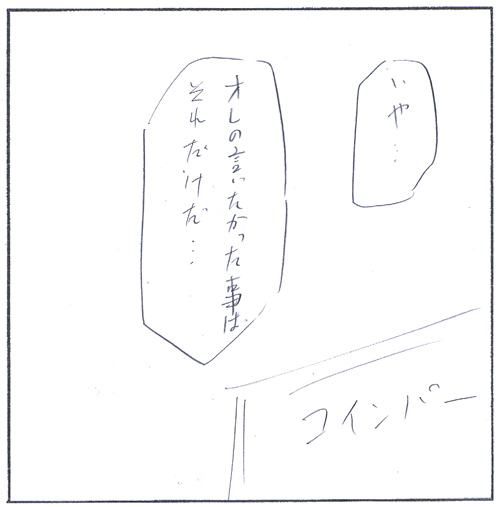 いや…
オレの言いたかった事は
それだけだ…
コインパー